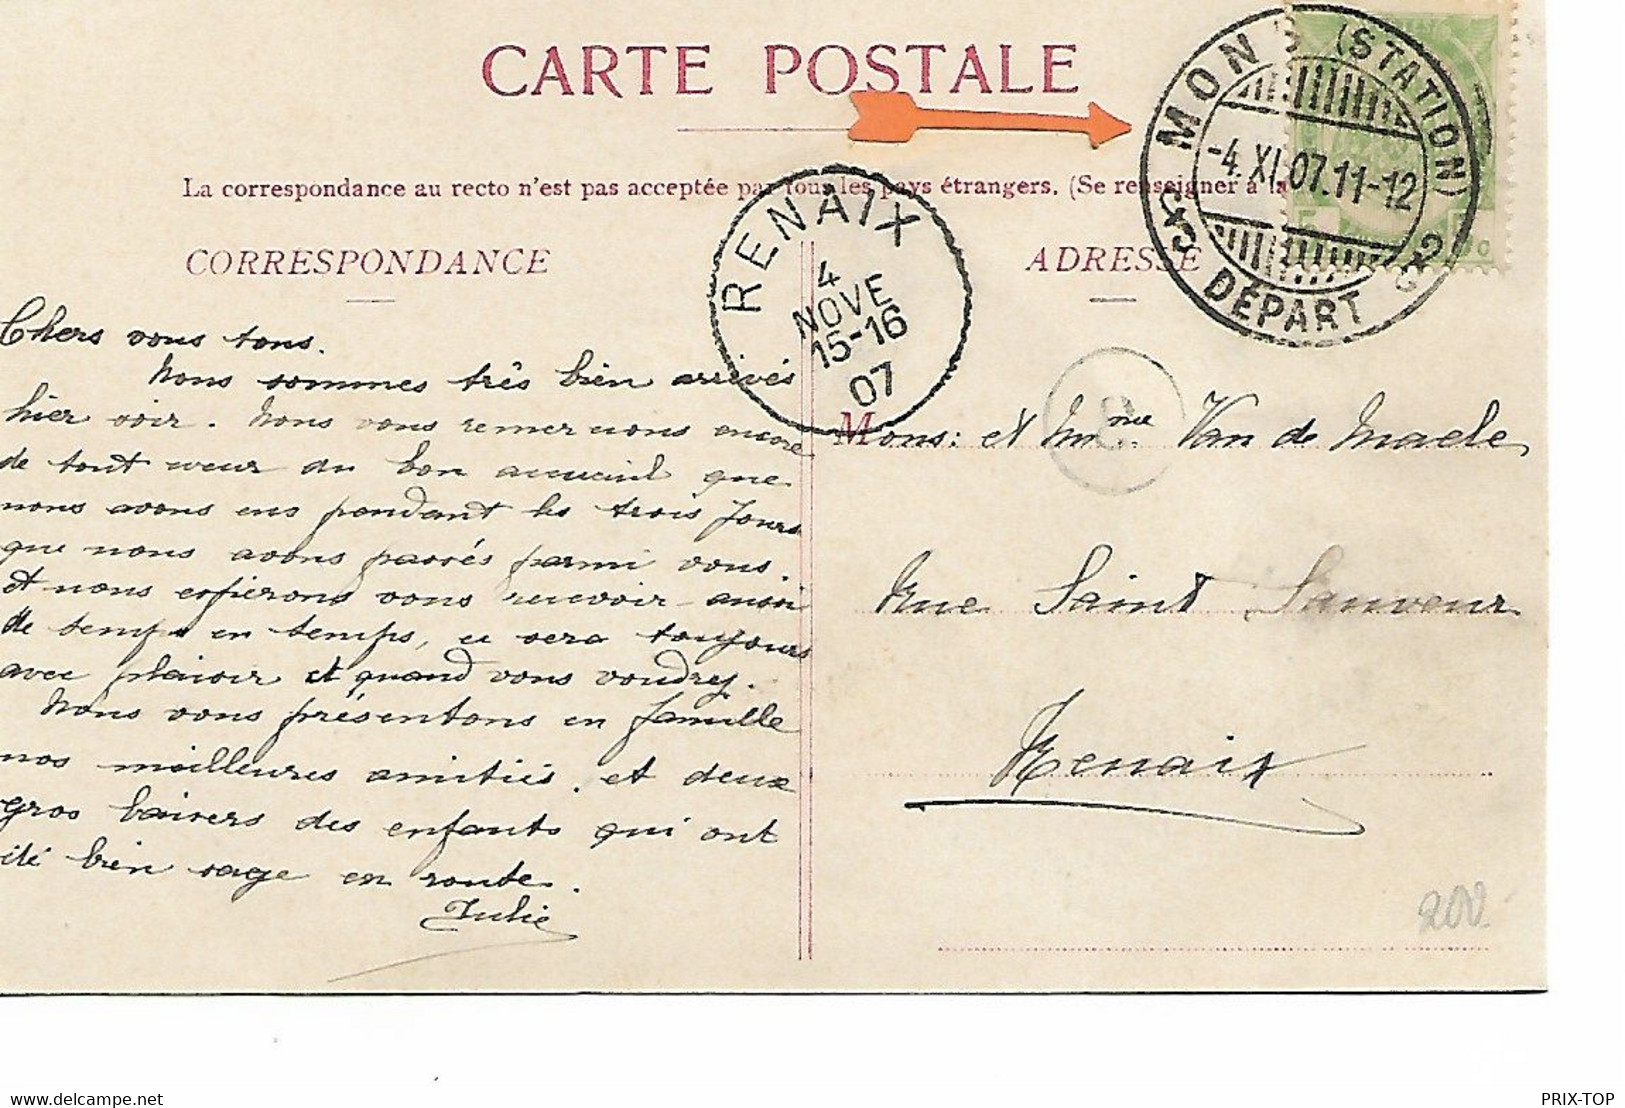 CARTE POSTALE
La correspondance au recto n'est pas acceptée par tous les pays étrangers. (Se renseigner à la
CORRESPONDANCE
ADRESSE
MONS (STATION)
-4.XI.07.11-12
DÉPART
RENAIX
4
NOVE
15-16
07
8
Chers vous tous.
Nous sommes très bien arrivés
hier soir. Nous vous remercions encore
de tout coeur du bon accueuil que
nous avons eus pendant les trois jours
que nous avons passés parmi vous.
et nous espérons vous recevoir aussi
de temps en temps, ce sera toujours
avec plaisir et quand vous voudrez.
Nous vous présentons en famille
nos meilleures amitiés. et deux
gros baisers des enfants qui ont
été bien sage en route.
Julie
Mons: et Mme Van de Maele
Rue Saint Sauveur
Renaix
200
www.delcampe.net
PRIX-TOP